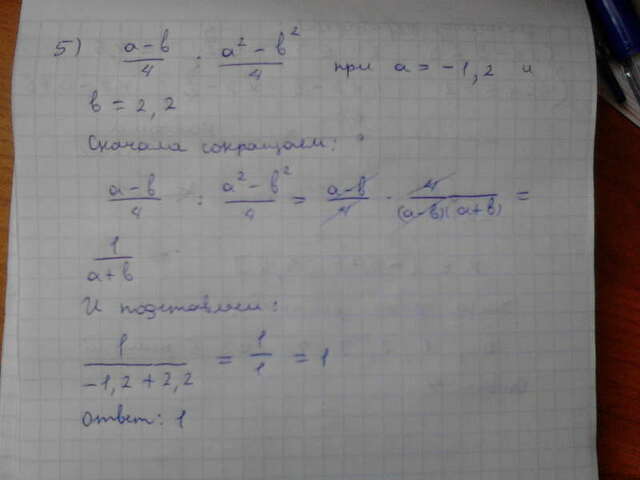 5) (a-b)/4 : (a²-b²)/4 при a = -1,2 и
b = 2,2
Сначала сокращаем:
(a-b)/4 : (a²-b²)/4 = (a-b)/4 · 4/((a-b)(a+b)) =
1/(a+b)
И подставляем:
1/(-1,2+2,2) = 1/1 = 1
Ответ: 1